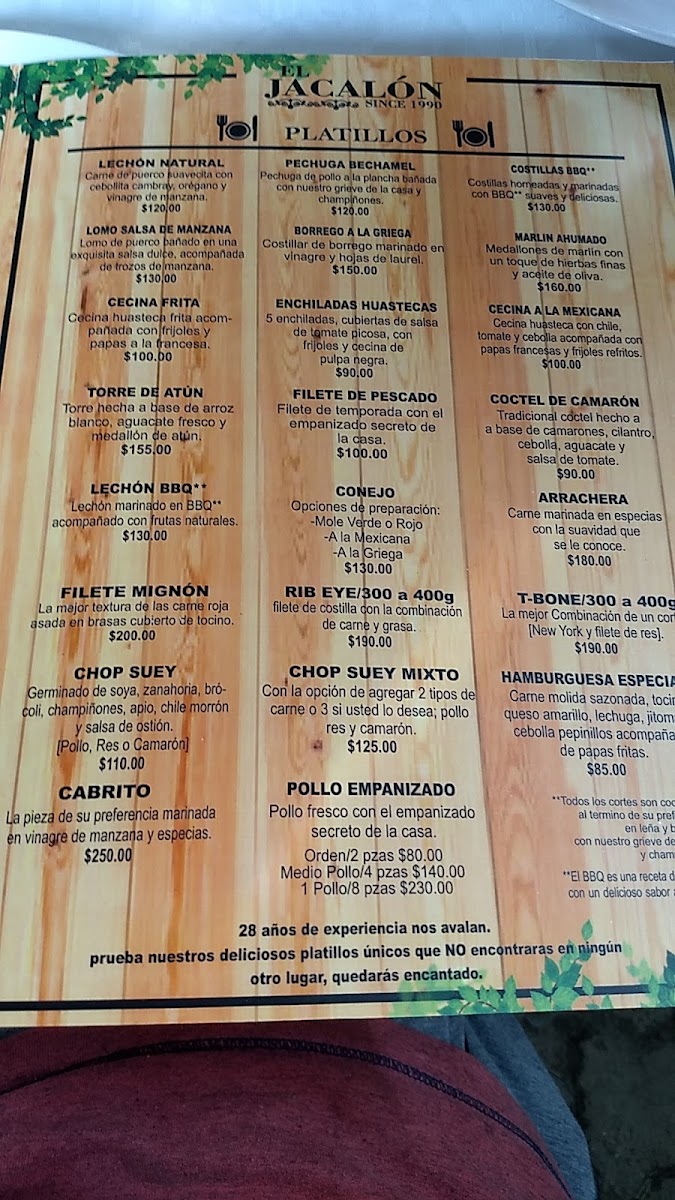 EL
JACALÓN
SINCE 1990
PLATILLOS
LECHÓN NATURAL
Carne de puerco suavecita con
cebollita cambray, orégano y
vinagre de manzana.
$120.00
LOMO SALSA DE MANZANA
Lomo de puerco bañado en una
exquisita salsa dulce, acompañada
de trozos de manzana.
$130.00
CECINA FRITA
Cecina huasteca frita acom-
pañada con frijoles y
papas a la francesa.
$100.00
TORRE DE ATÚN
Torre hecha a base de arroz
blanco, aguacate fresco y
medallón de atún.
$155.00
LECHÓN BBQ**
Lechón marinado en BBQ**
acompañado con frutas naturales.
$130.00
FILETE MIGNÓN
La mejor textura de las carne roja
asada en brasas cubierto de tocino.
$200.00
CHOP SUEY
Germinado de soya, zanahoria, bró-
coli, champiñones, apio, chile morrón
y salsa de ostión.
[Pollo, Res o Camarón]
$110.00
CABRITO
La pieza de su preferencia marinada
en vinagre de manzana y especias.
$250.00
PECHUGA BECHAMEL
Pechuga de pollo a la plancha bañada
con nuestro grieve de la casa y
champiñones.
$120.00
BORREGO A LA GRIEGA
Costillar de borrego marinado en
vinagre y hojas de laurel.
$150.00
ENCHILADAS HUASTECAS
5 enchiladas, cubiertas de salsa
de tomate picosa, con
frijoles y cecina de
pulpa negra.
$90.00
FILETE DE PESCADO
Filete de temporada con el
empanizado secreto de
la casa.
$100.00
CONEJO
Opciones de preparación:
-Mole Verde o Rojo
-A la Mexicana
-A la Griega
$130.00
RIB EYE/300 a 400g
filete de costilla con la combinación
de carne y grasa.
$190.00
CHOP SUEY MIXTO
Con la opción de agregar 2 tipos de
carne o 3 si usted lo desea; pollo
res y camarón.
$125.00
POLLO EMPANIZADO
Pollo fresco con el empanizado
secreto de la casa.
Orden/2 pzas $80.00
Medio Pollo/4 pzas $140.00
1 Pollo/8 pzas $230.00
COSTILLAS BBQ**
Costillas horneadas y marinadas
con BBQ** suaves y deliciosas.
$130.00
MARLIN AHUMADO
Medallones de marlín con
un toque de hierbas finas
y aceite de oliva.
$160.00
CECINA A LA MEXICANA
Cecina huasteca con chile,
tomate y cebolla acompañada con
papas francesas y frijoles refritos.
$100.00
COCTEL DE CAMARÓN
Tradicional cóctel hecho a
a base de camarones, cilantro,
cebolla, aguacate y
salsa de tomate.
$90.00
ARRACHERA
Carne marinada en especias
con la suavidad que
se le conoce.
$180.00
T-BONE/300 a 400g
La mejor Combinación de un cor
[New York y filete de res].
$190.00
HAMBURGUESA ESPECIA
Carne molida sazonada, tocin
queso amarillo, lechuga, jitom
cebolla pepinillos acompaña
de papas fritas.
$85.00
**Todos los cortes son coc
al termino de su pref
en leña y
con nuestro grieve de
y cham
**El BBQ es una receta d
con un delicioso sabor
28 años de experiencia nos avalan.
prueba nuestros deliciosos platillos únicos que NO encontraras en ningún
otro lugar, quedarás encantado.